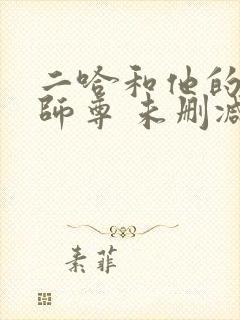 二哈和他的
師尊 未删减
素菲